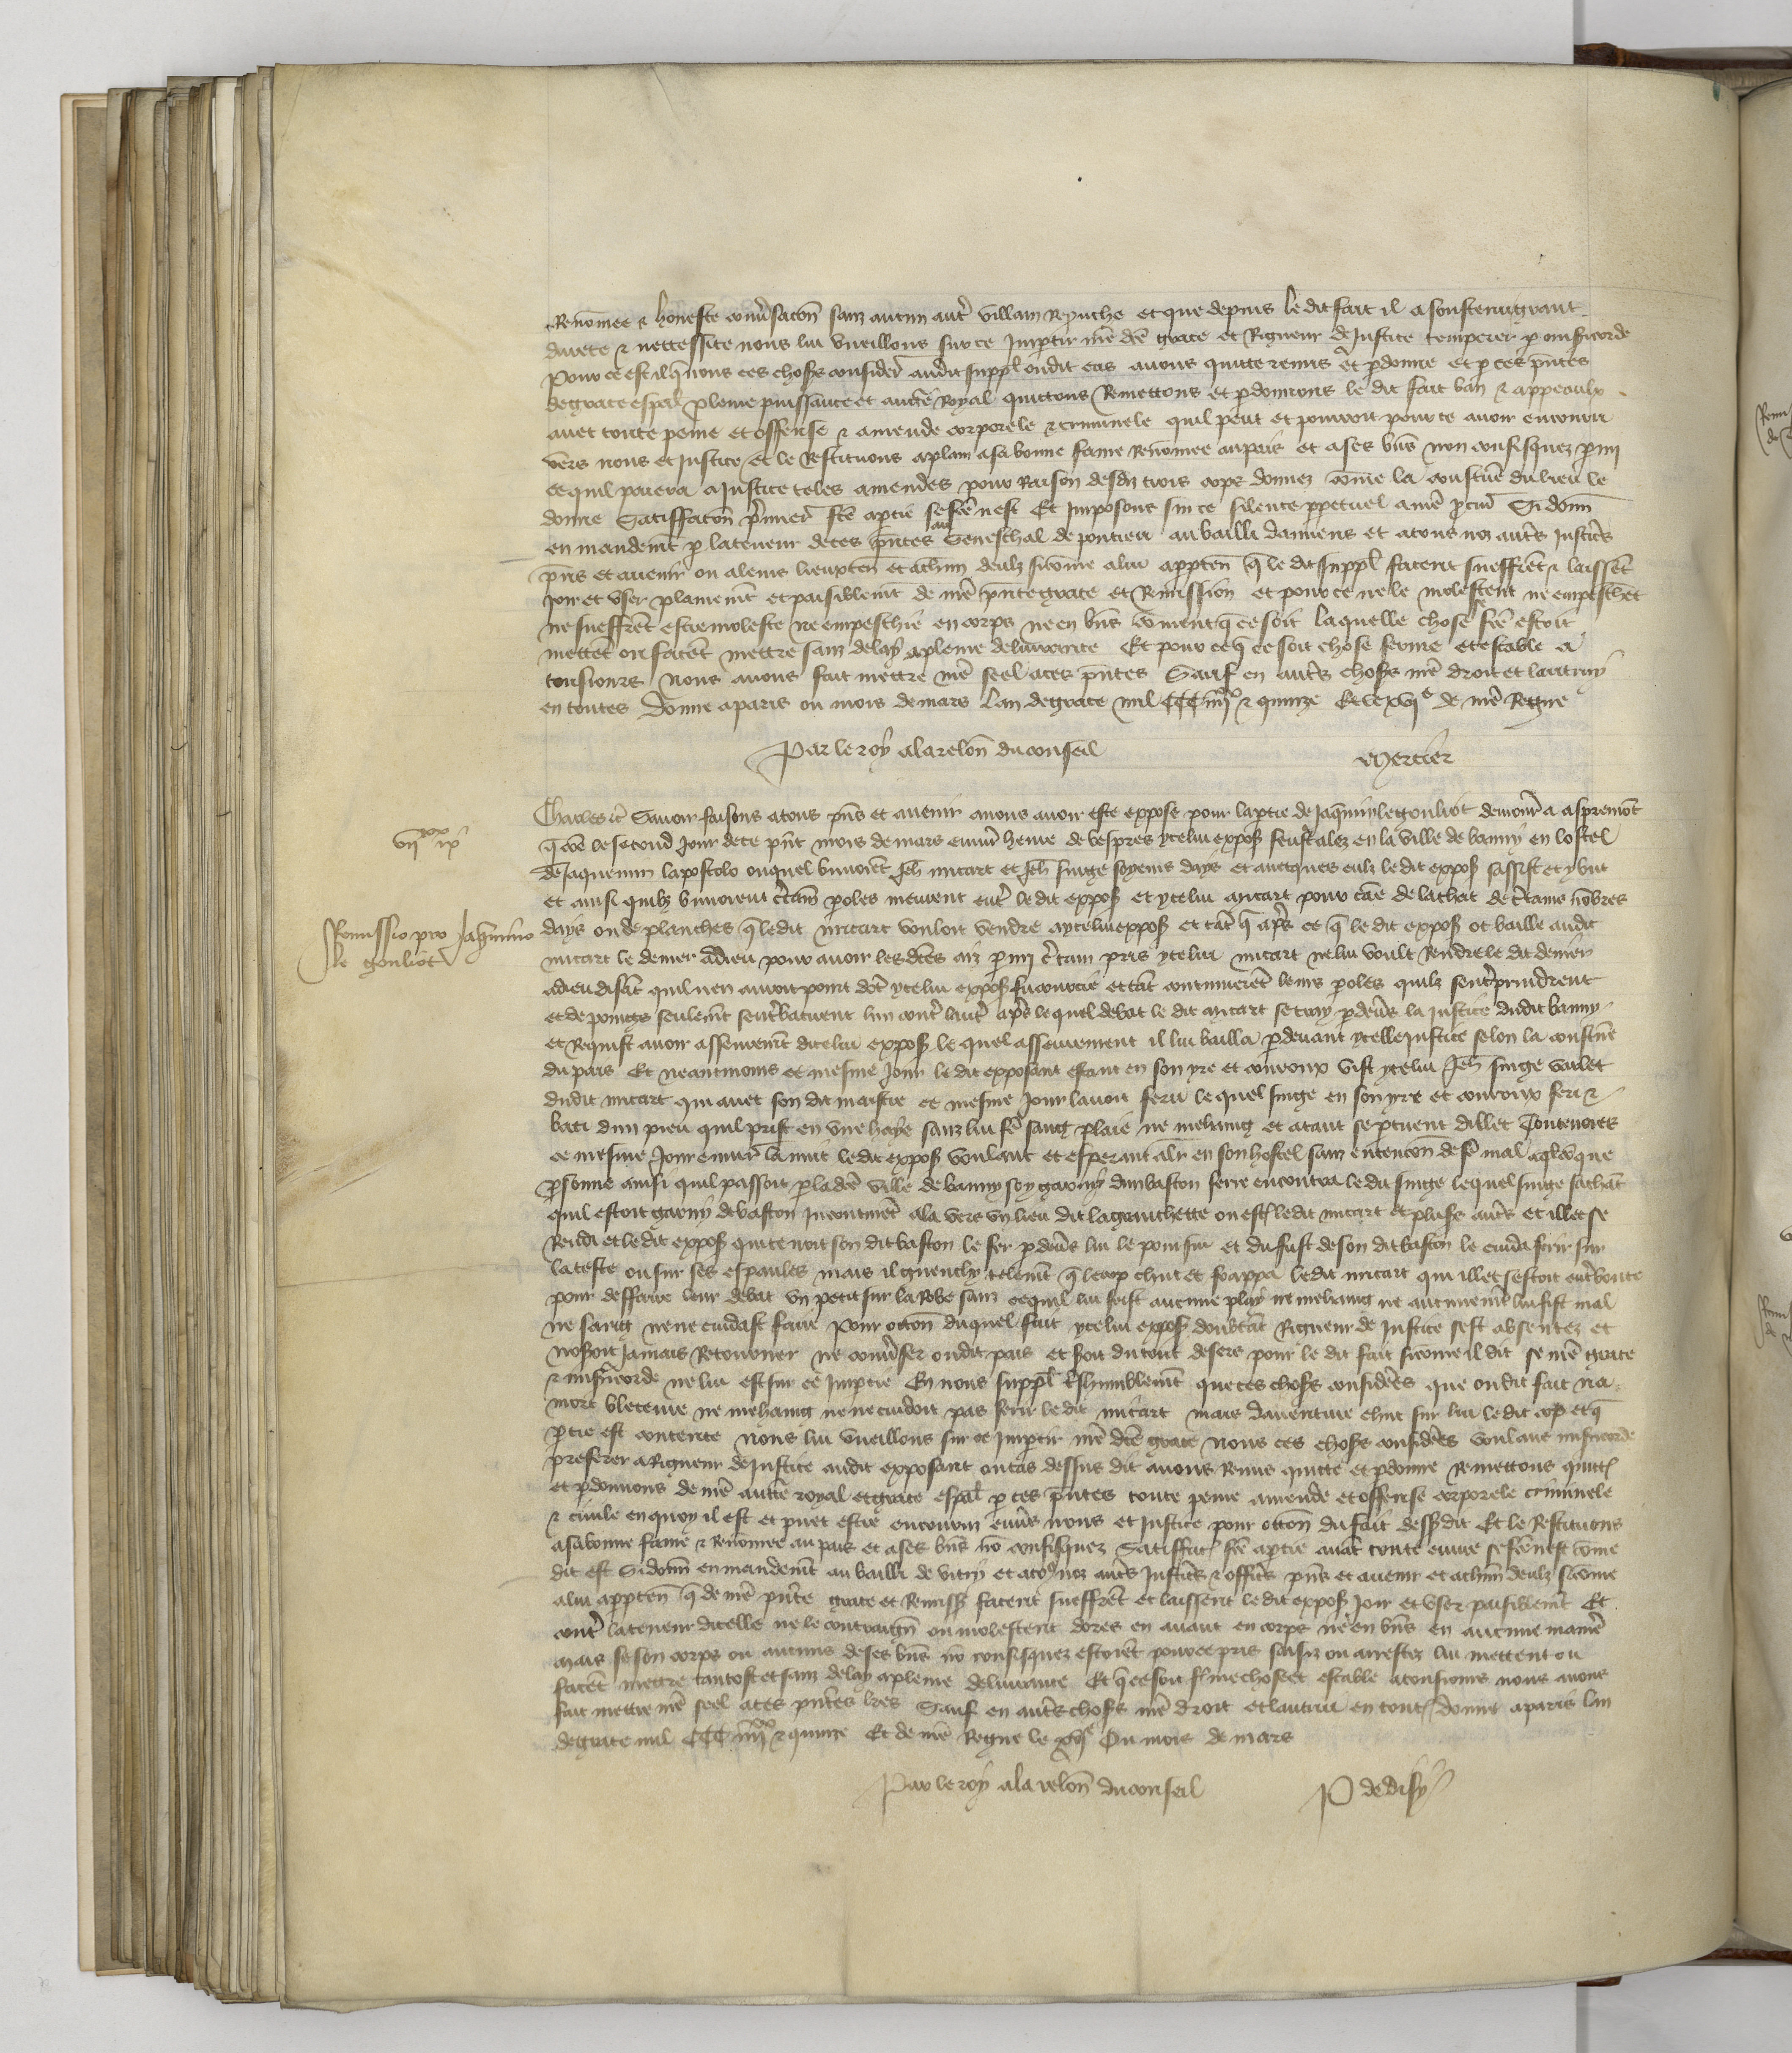 Renomee & honneste conversacon sanz aucun autre villain Reprouche et que depuis le dit fait il a soustenu grant
durete & necessite nous lui vueillons sur ce Impartir nre dce grace et Rigueur de Justice temperer par misericorde
Pour ce est il que nous ces choses considerees audit suppl ou dit cas avons quitte remis et pdonne et p ces pntes
de grace espal plaine puissance et aucte Royal quictons Remettons et pdonnons le dit fait ban & appeaulx
avec toute peine et offense & amende corporele & criminele quil peut et pourroit pour ce avoir encouru
vers nous et Justice et le Restituons a plain a sa bonne fame Renomee au pais et a ses bns non confisquez parmi
ce quil paiera a Justice teles amendes pour Raison desdiz trois cops donnez come la coustume du lieu le
donne Satisfacon premier fce a ptie se fce nest Et Imposons sur ce silence ppetuel a nre pcur Si donn
en mandemt p la teneur de ces pntes au Seneschal de pontieu au bailli damiens et a tous noz autres Justiciers
pns et avenir ou a leurs lieuxten et a chun deulz sicome a lui apptien que le dit suppl facent sueffrent & laissent
Joir et user plainemt et paisiblemt de nre pnte grace et Remission et pour ce ne le molestent ne empeschent
ne sueffrent estre moleste ne empeschie en corps ne en bns coment que ce soit la quelle chose se fce estoit
mettent ou facent mettre sanz delay a pleine delivrance Et pour ce que ce soit chose ferme et estable a
tousiours Nous avons fait mettre nre seel a ces pntes Sauf en autres choses nre droit et lautruy
en toutes Donne a paris ou mois de mars lan de grace mil CCC iiijxx & quinze Et le xvje de nre Regne
Par le roy a la relon du conseil Mercier
Charles etc Savoir faisons a tous pns et avenir a nous avoir este expose pour la ptie de Jaqmin le gouliot demour a aspremont
vijxx ix
que come le second Jour de ce pnt mois de mars environ heure de vespres ycelui expos feust alez en la ville de banny en lostel
de Jaquemin lapostolo ouquel buvoient Jeh micart et Jeh singe soyeurs days et avecques eulz le dit expos sassist et y but
et ainsi quilz buvoient certain poles meurent entre le dit expos et ycelui micart pour cause de lachat de certains nombres
Remissio pro Jaqmino
le gouliot
days ou de planches que le dit micart vouloit vendre a ycelui expos et tant que apres ce que le dit expos ot baille audit
micart le denier a dieu pour avoir lesdces aiz parmi certain pris ycelui micart ne lui voult Rendre le dit denier
a dieu disant quil nen avoit point dont ycelui expos fu courcie et tant continuerent leurs poles quilz sentreprindrent
et de poings seulemt sentrebatirent lun contre lautre apres lequel debat le dit micart se tray pdevers la Justice dudit banny
et Requist avoir asseurement dicelui expos le quel asseurement il lui bailla pdevant ycelle Justice selon la coustume
du pais Et neantmoins ce mesme Jour le dit exposant estant en son yre et courroux vist ycelui Jeh singe varlet
dudit micart qui avec son dit maistre ce mesme Jour lavoit feru le quel singe en son yre et courroux feri &
bati dun pieu quil prist en une haye sanz lui fe sang plaie ne mehaing et atant se ptirent dillec Toutevoies
ce mesme Jour environ la nuit le dit expos voulant et esperant aler en son hostel sanz entencon de fe mal a qlconque
psonne ainsi quil passoit p la dce ville de banny soy garny dun baston ferre encontra le dit singe lequel singe sachant
quil estoit garny de baston Incontinent ala vers un lieu dit la granchette ou estoit le dit micart et pluss autres et illec se
Rendi et le dit expos qui tenoit son dit baston le fer pdevers lui le poursui et du fust de son dit baston le cuida ferir sur
la teste ou sur ses espaules mais il guenchy telemt que le cop chut et frappa le dit micart qui illec sestoit entreboute
pour deffaire leur debat un petit sur la Robe sanz ce quil lui feist aucune play ne mehaing ne aucunemt lui fist mal
ne sang ne ne cuidast faire Pour occon duquel fait ycelui expos doubtant Rigueur de Justice sest absentez et
noseroit Jamais Retourner ne converser ou dit pais et seroit du tout desers pour le dit fait sicome il dit se nre grace
& misericorde ne lui est sur ce Impartie En nous suppl treshumblemt que ces choses considerees que ou dit fait na
mort bleceure ne mehaing ne ne cuidoit pas ferir le dit micart mais daventure chut sur lui le dit cop et que
ptie est contente nous lui vueillons sur ce Impartir nre dce grace Nous ces choses considerees voulans misericorde
preferer a Rigueur de Justice audit exposant ou cas dessus dit avons Remis quitte et pdonne Remettons quitt
et pdonnons de nre aucte royal et grace espal p ces pntes toute peine amende et offense corporele criminele
& civile en quoy il est et puet estre encouru envers nous et Justice pour occon du fait dessus dit Et le Restituons
a sa bonne fame & Renomee au pais et a ses bns non confisquez Satisfacc fce a ptie avant toute euvre se fce nest come
dit est Si donn en mandemt au bailli de vitry et a tous noz autres Justiciers & officiers pns et avenir et a chun deulz sicome
a lui apptien que de nre pnte grace et Remiss facent sueffrent et laissent le dit expos Joir et user paisiblemt Et
contre la teneur dicelle ne le contraign ou molestent dores en avant en corps ne en bns en aucune maniere
mais se son corps ou aucuns de ses bns non confisquez estoient pour ce pris saisiz ou arrestez lui mettent ou
facent mettre tantost et sanz delay a pleine delivrance Et que ce soit ferme chose et estable a tousiours nous avons
fait mettre nre seel a ces pntes lres Sauf en autres choses nre droit et lautrui en tout Donne a paris lan
de grace mil CCC iiijxx & quinze Et de nre Regne le xvje Ou mois de mars
Par le roy a la relon du conseil P de disy